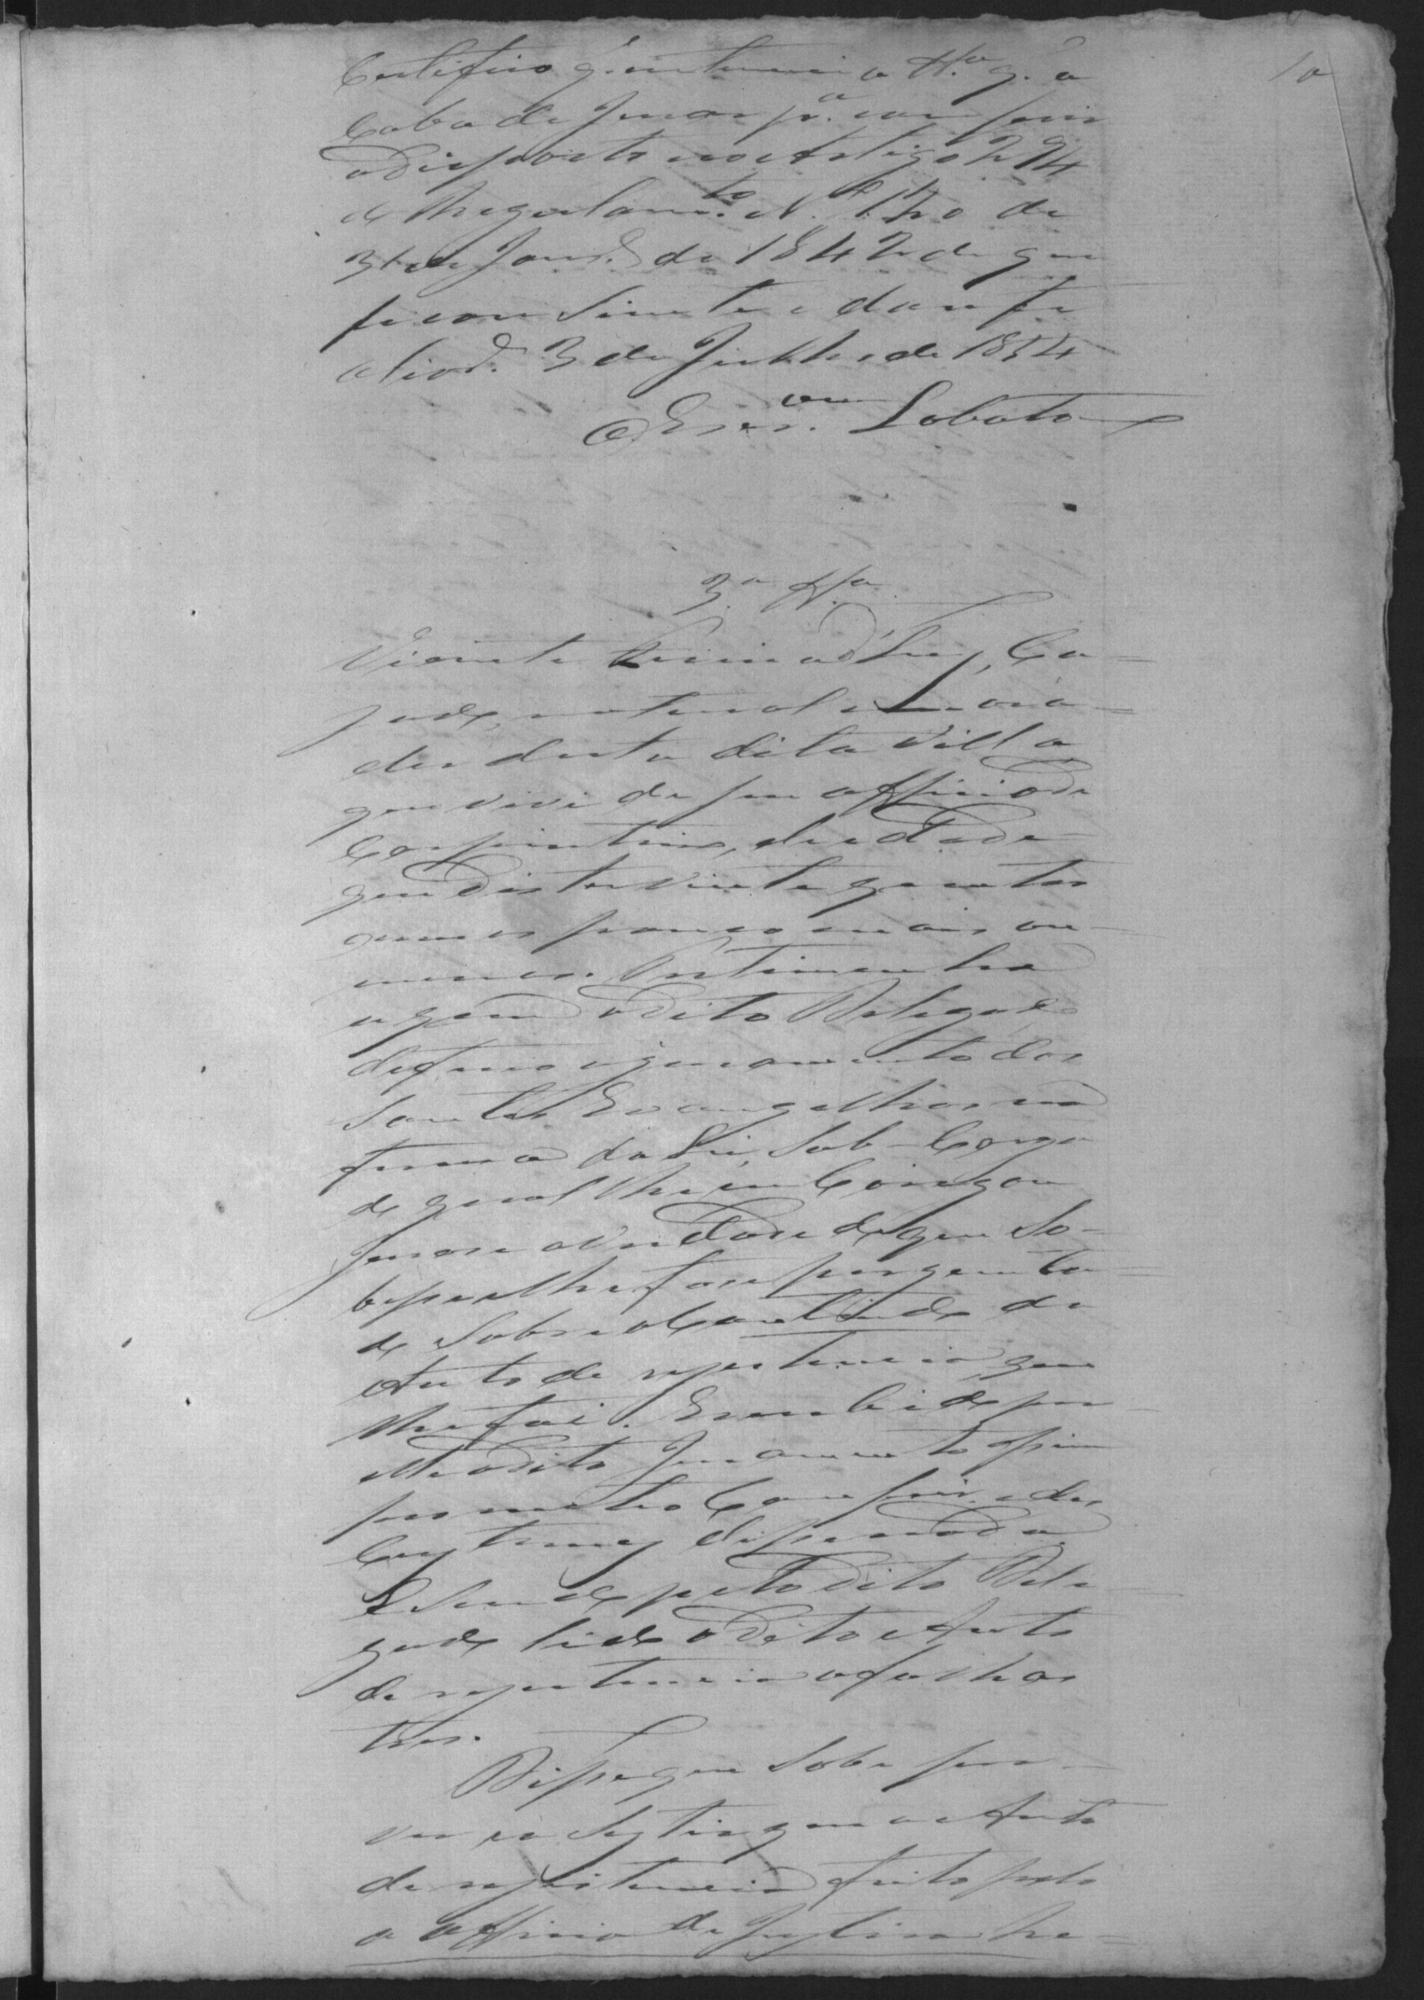 10
Certifico q. intimei a Tta. q. a
Caba de Jurar pa. cumprir
o disposto no Artigo 294
do Regulamto. N. 120 de
31 de Janro. de 1842 de que
ficou Siente e dou fé
3 de Julho de 1854
O Escram. Lobato
3a. Tta.
Vicente, Ca-
zado, natural e mora-
dor desta dita Villa
que vive de seu officio de
Carpinteiro, de idade
que disse ter vinte quatro
annos pouco mais ou
menos. Testimunha
a quem o dito Delegado
deferio o juramento dos
Santos Evangelhos em
forma da Lei, Sob Cargo
do qual lhe en Caregou
jurase a verdade do que So-
besse e lhe fose pergunta-
do Sobre o Contiudo do
Auto de resistencia, que
lhe foi. E recebido por
elle o dito Juramento assim
prometeo Comprir, e dos
Custumes disse nada
E Sendo pelo dito Dele-
gado lido o dito Auto
de resistencia a folhas
tres.
Disse que Sabe por
ver que o Auto
de resistencia feito pelo
o Officio de Justica he